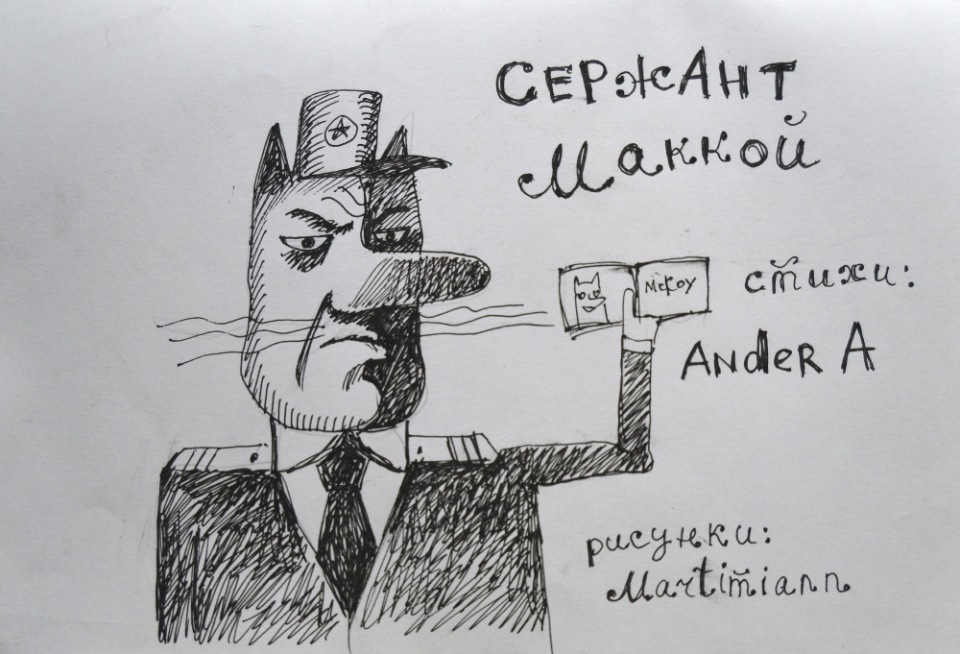 СЕРЖАНТ
Маккой
McKoy
стихи:
Ander A
рисунки:
Martimiann